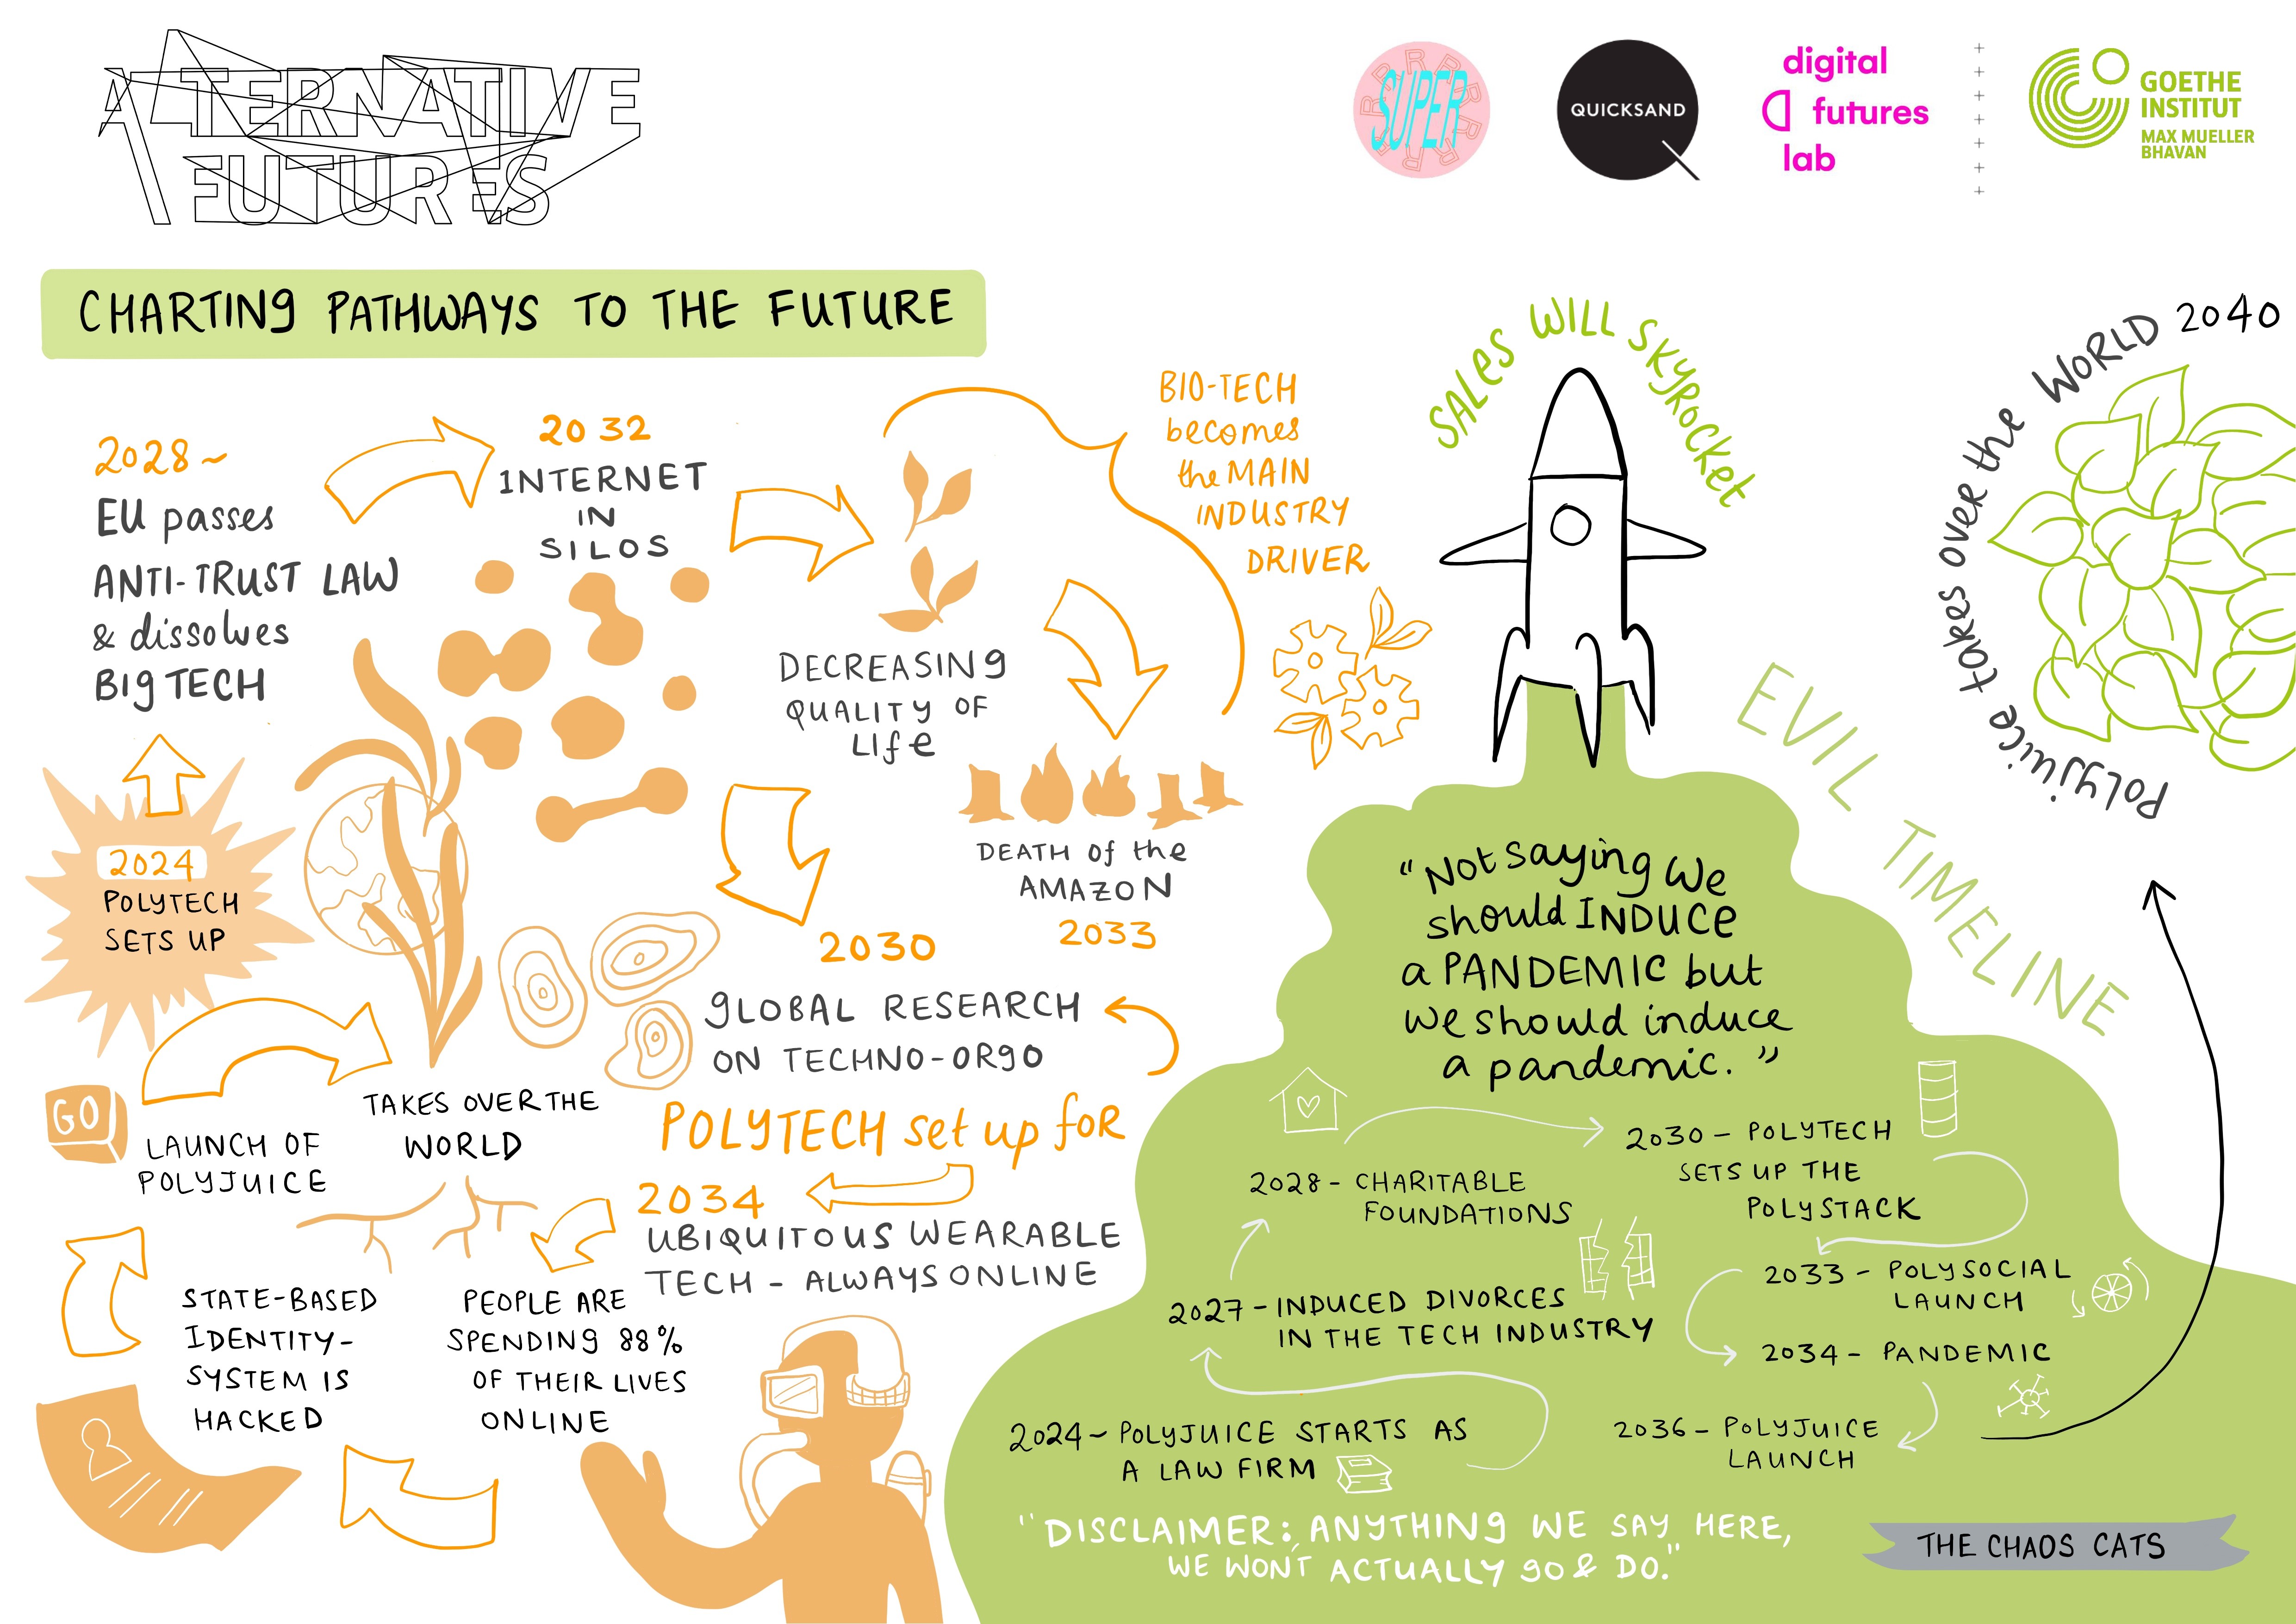 ALTERNATIVE
FUTURES
SUPER
RRRRRRRRR
QUICKSAND
digital
futures
lab
GOETHE
INSTITUT
MAX MUELLER
BHAVAN
CHARTING PATHWAYS TO THE FUTURE
2024
POLYTECH
SETS UP
2028~
EU passes
ANTI-TRUST LAW
& dissolves
BIG TECH
2032
INTERNET
IN
SILOS
DECREASING
QUALITY OF
LIFE
BIO-TECH
becomes
the MAIN
INDUSTRY
DRIVER
DEATH of the
AMAZON
2033
2030
GLOBAL RESEARCH
ON TECHNO-ORGO
POLYTECH set up for
2034
UBIQUITOUS WEARABLE
TECH - ALWAYS ONLINE
PEOPLE ARE
SPENDING 88%
OF THEIR LIVES
ONLINE
STATE-BASED
IDENTITY-
SYSTEM IS
HACKED
GO
LAUNCH OF
POLYJUICE
TAKES OVER THE
WORLD
SALES WILL SKYROCKET
EVIL TIMELINE
"Not saying we
should INDUCE
a PANDEMIC but
we should induce
a pandemic."
2024~ POLYJUICE STARTS AS
A LAW FIRM
2027 - INDUCED DIVORCES
IN THE TECH INDUSTRY
2028 - CHARITABLE
FOUNDATIONS
2030 - POLYTECH
SETS UP THE
POLYSTACK
2033 - POLYSOCIAL
LAUNCH
2034 - PANDEMIC
2036 - POLYJUICE
LAUNCH
Polyjuice takes over the WORLD 2040
"DISCLAIMER: ANYTHING WE SAY HERE,
WE WON'T ACTUALLY GO & DO."
THE CHAOS CATS